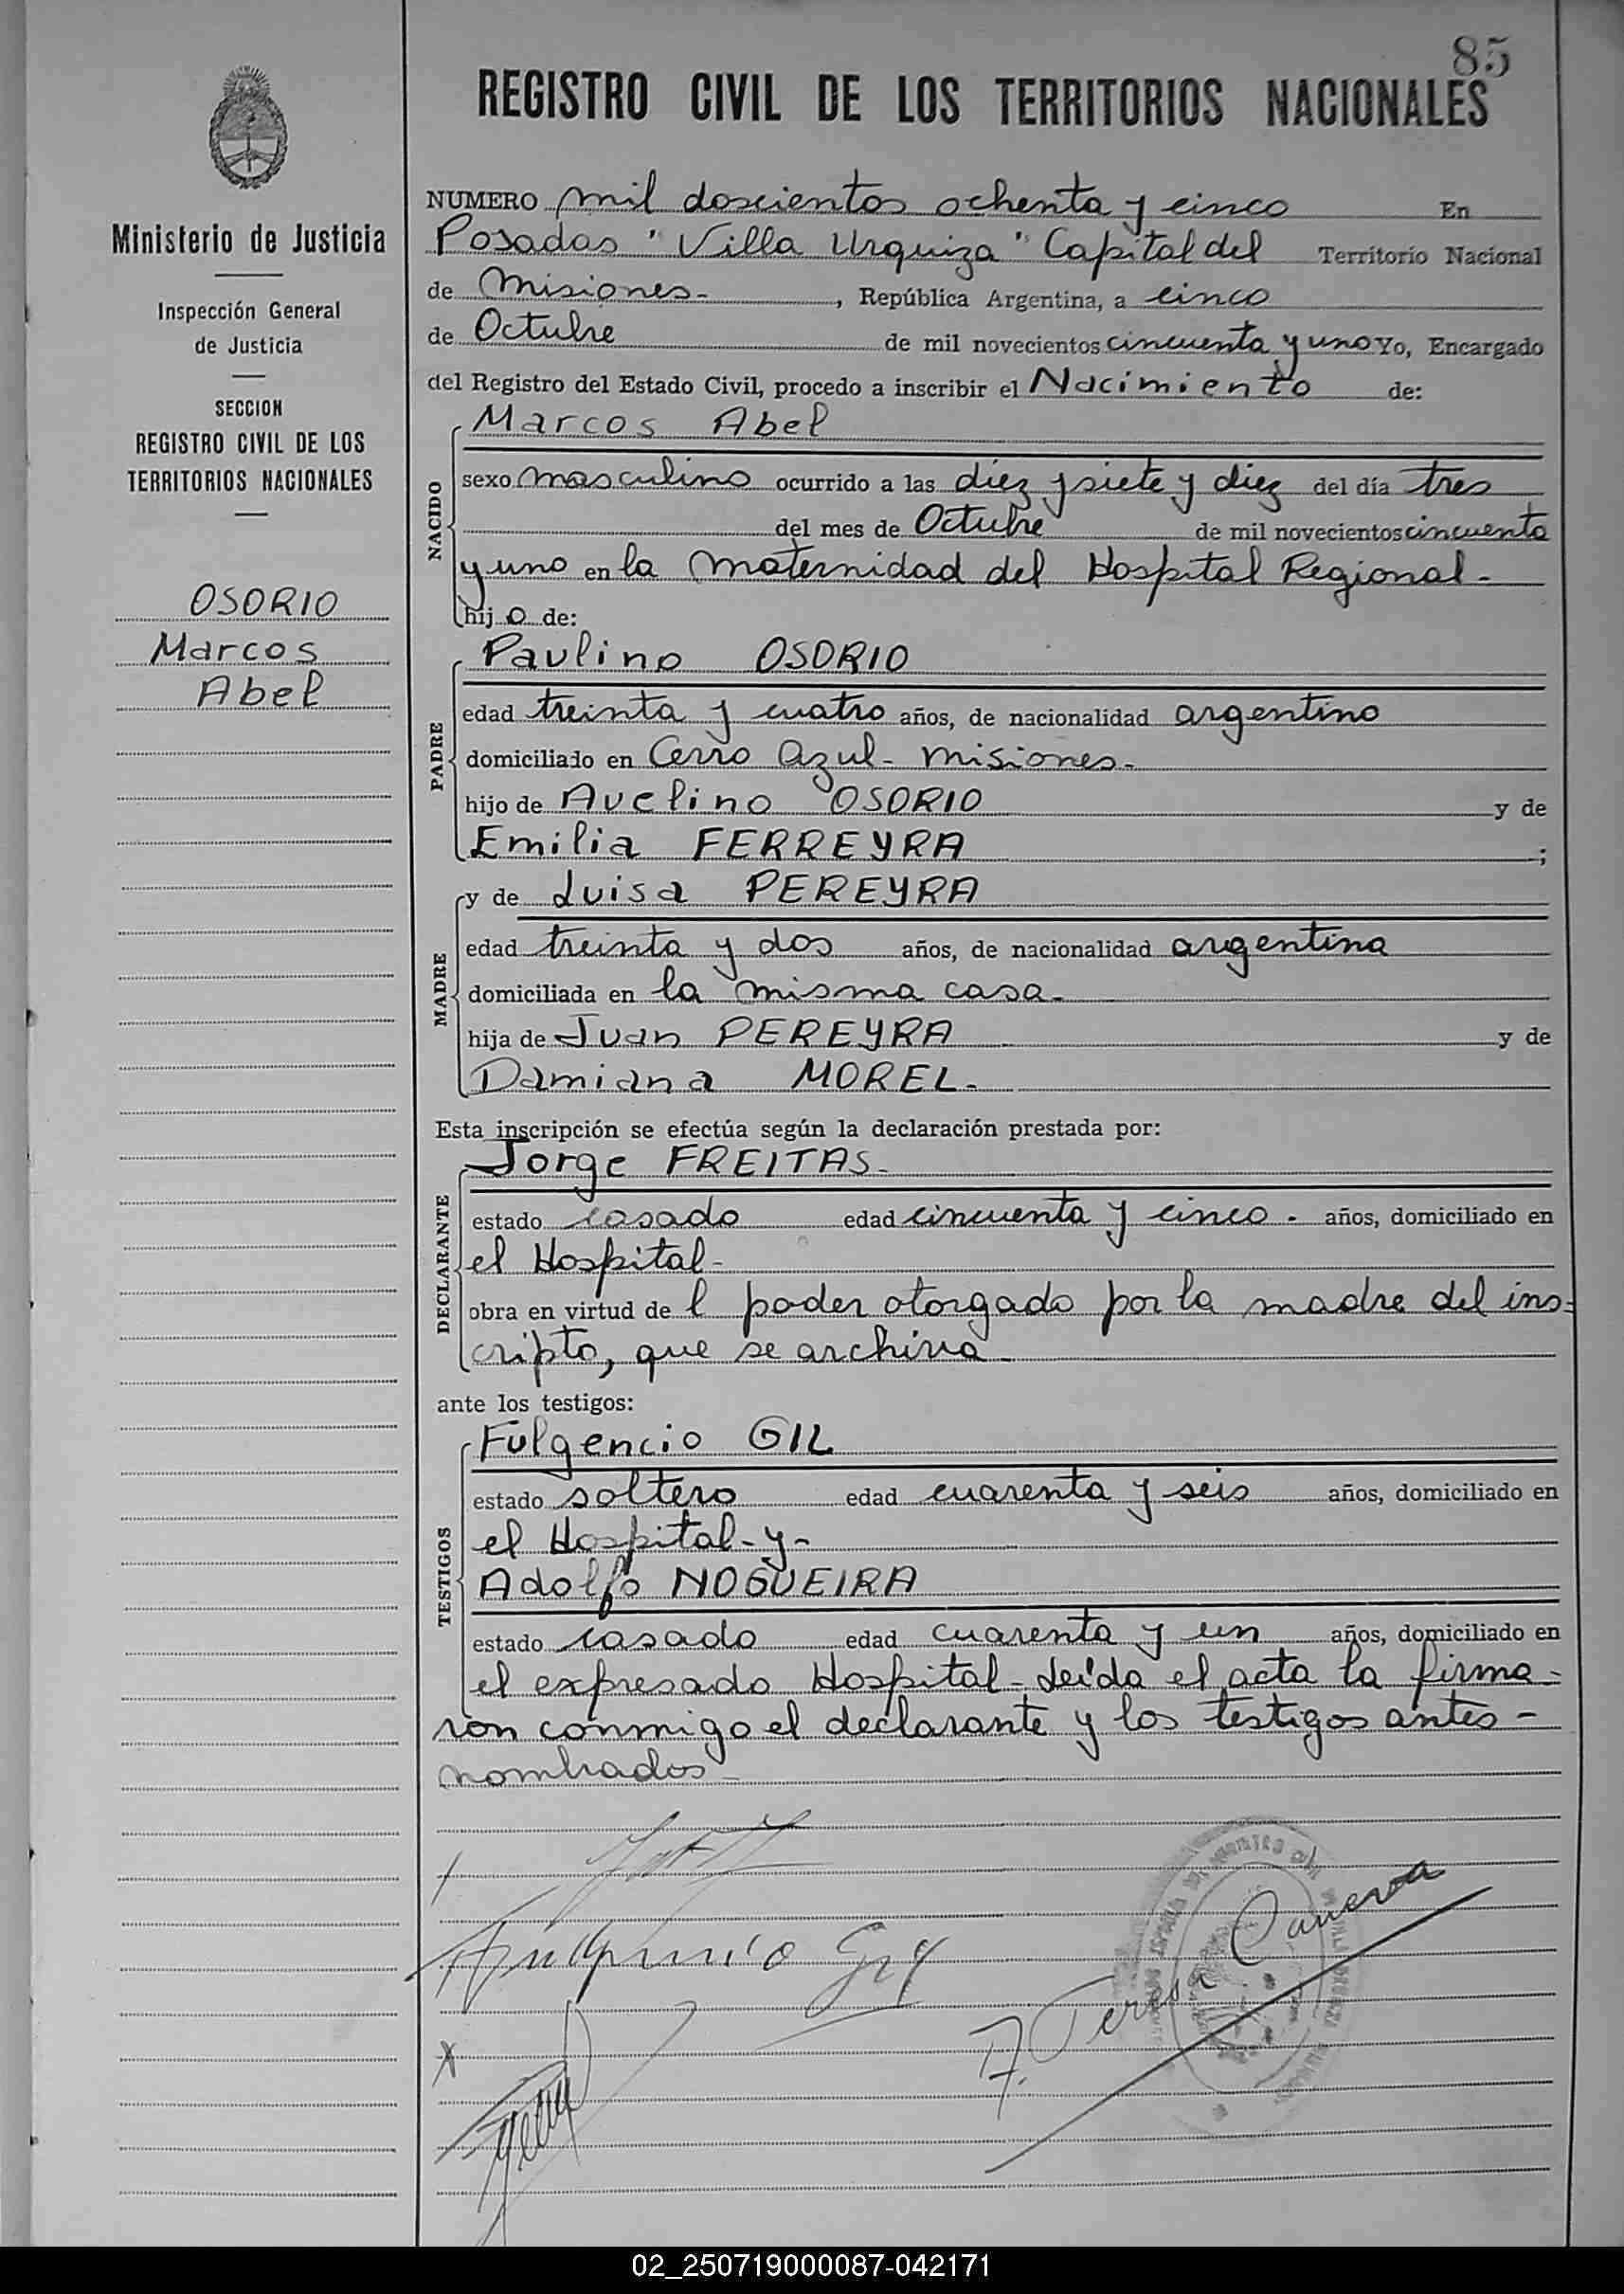 85
REGISTRO CIVIL DE LOS TERRITORIOS NACIONALES
Ministerio de Justicia
Inspección General
de Justicia
SECCION
REGISTRO CIVIL DE LOS
TERRITORIOS NACIONALES
OSORIO
Marcos
Abel
NUMERO mil doscientos ochenta y cinco En
Posadas "Villa Urquiza" Capital del Territorio Nacional
de Misiones-, República Argentina, a cinco
de Octubre de mil novecientos cincuenta y uno Yo, Encargado
del Registro del Estado Civil, procedo a inscribir el Nacimiento de:
NACIDO
Marcos Abel
sexo masculino ocurrido a las diez y siete y diez del día tres
del mes de Octubre de mil novecientos cincuenta
y uno en la maternidad del Hospital Regional-
hijo de:
PADRE
Paulino OSORIO
edad treinta y cuatro años, de nacionalidad argentino
domiciliado en Cerro Azul- misiones-
hijo de Avelino OSORIO y de
Emilia FERREYRA ;
MADRE
y de Luisa PEREYRA
edad treinta y dos años, de nacionalidad argentina
domiciliada en la misma casa-
hija de Juan PEREYRA y de
Damiana MOREL-
Esta inscripción se efectúa según la declaración prestada por:
DECLARANTE
Jorge FREITAS-
estado casado edad cincuenta y cinco. años, domiciliado en
el Hospital-
obra en virtud de l poder otorgado por la madre del ins-
cripto, que se archiva-
ante los testigos:
TESTIGOS
Fulgencio GIL
estado soltero edad cuarenta y seis años, domiciliado en
el Hospital-y-
Adolfo NOGUEIRA
estado casado edad cuarenta y un años, domiciliado en
el expresado Hospital-Leída el acta la firma-
ron conmigo el declarante y los testigos antes-
nombrados-
Gil
Canerva
02_250719000087-042171